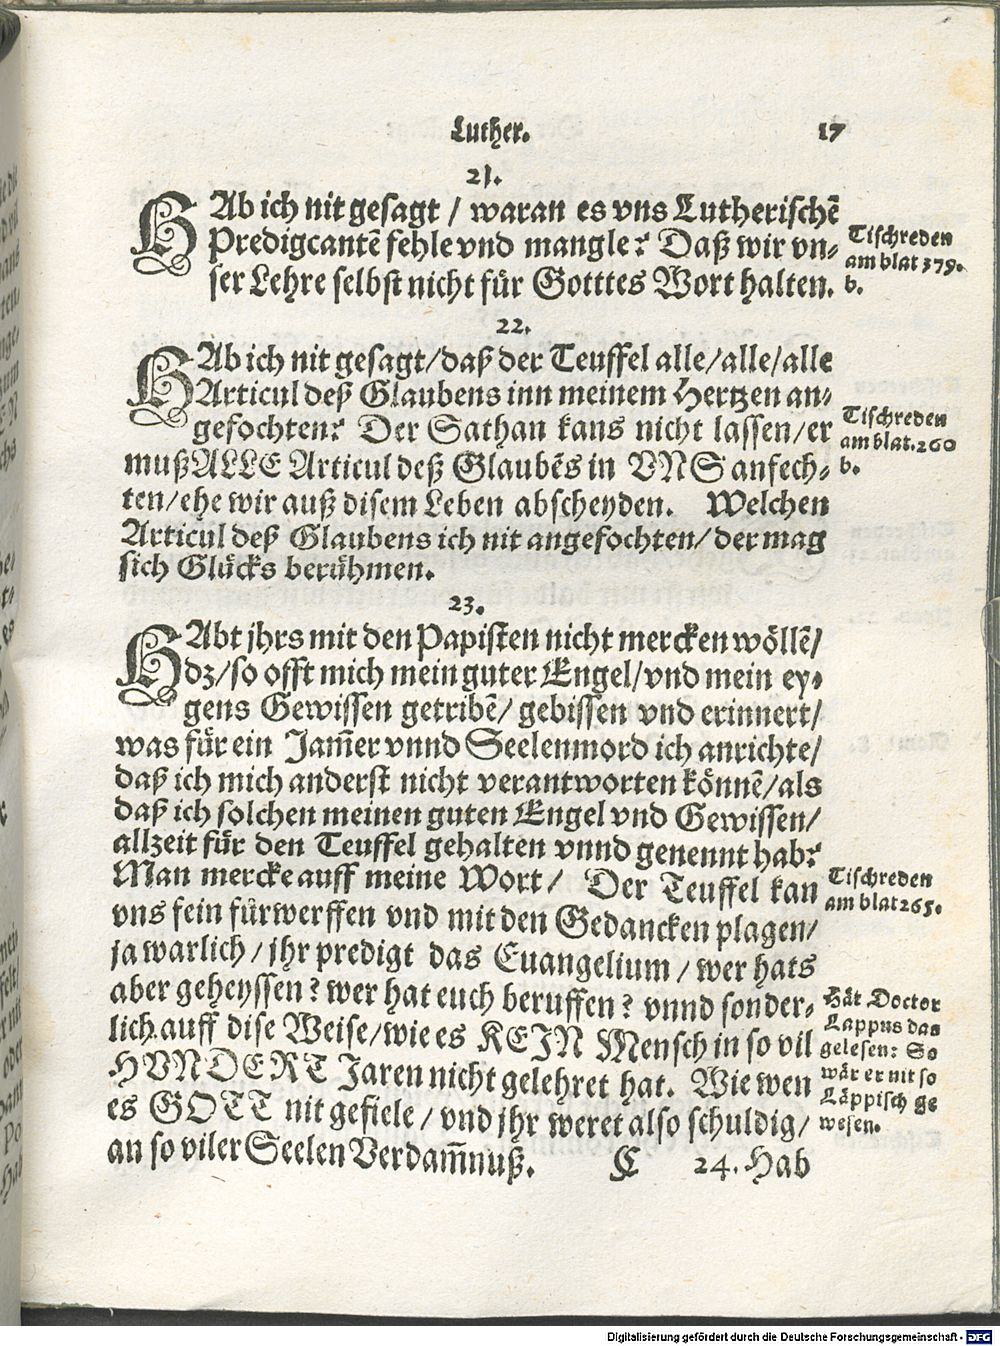 Luther. 17
21.
HAb ich nit gesagt / waran es vns Lutherischẽ
Predigcantẽ fehle vnd mangle? Daß wir vn-
ser Lehre selbst nicht für Gotttes Wort halten.
Tischreden
am blat 379.
b.
22.
HAb ich nit gesagt/daß der Teuffel alle/alle/alle
Articul deß Glaubens inn meinem Hertzen an-
gefochten? Der Sathan kans nicht lassen/er
muß ALLE Articul deß Glaubẽs in VNS anfech-
ten/ehe wir auß disem Leben abscheyden. Welchen
Articul deß Glaubens ich nit angefochten/der mag
sich Glücks berühmen.
Tischreden
am blat.260
b.
23.
HAbt jhrs mit den Papisten nicht mercken wöllẽ/
dz/so offt mich mein guter Engel/vnd mein ey-
gens Gewissen getribẽ/gebissen vnd erinnert/
was für ein Jam̃er vnnd Seelenmord ich anrichte/
daß ich mich anderst nicht verantworten könnẽ/als
daß ich solchen meinen guten Engel vnd Gewissen/
allzeit für den Teuffel gehalten vnnd genennt hab?
Man mercke auff meine Wort/ Der Teuffel kan
vns fein fürwerffen vnd mit den Gedancken plagen/
ja warlich/jhr predigt das Euangelium/wer hats
aber geheyssen? wer hat euch beruffen? vnnd sonder-
lich auff dise Weise/wie es KEIN Mensch in so vil
HVNDERT Jaren nicht gelehret hat. Wie wen
es GOTT nit gefiele/vnd jhr weret also schuldig/
an so viler Seelen Verdam̃nuß.
Tischreden
am blat 265.
Hät Doctor
Lappus das
gelesen: So
wär er nit so
Läppisch ge
wesen.
C 24. Hab
Digitalisierung gefördert durch die Deutsche Forschungsgemeinschaft - DFG